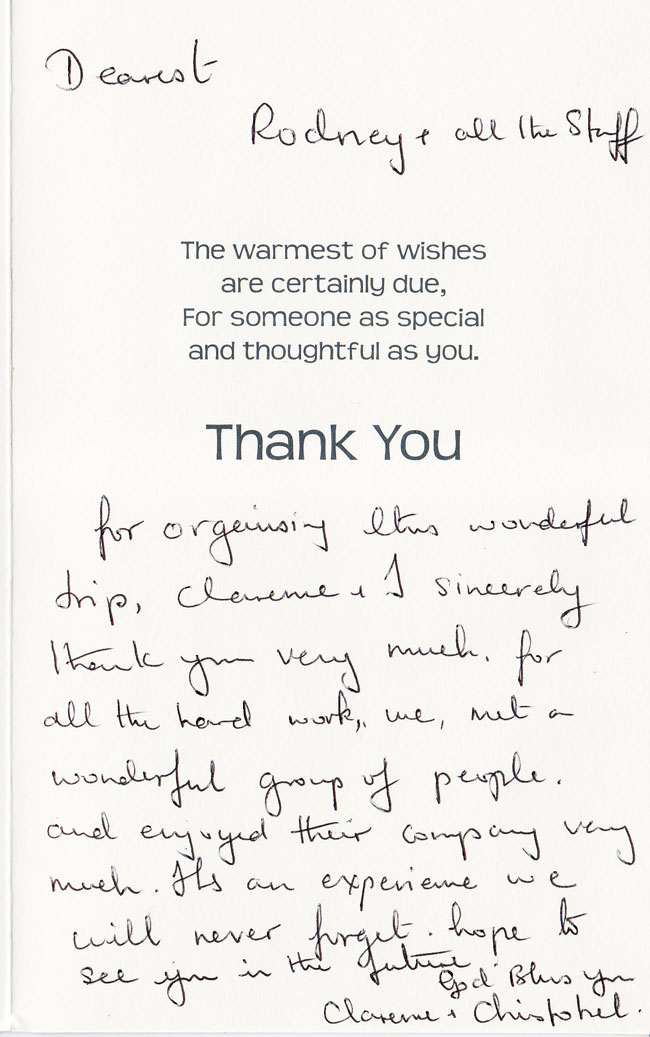 Dearest
Rodney + all the Staff
The warmest of wishes
are certainly due,
For someone as special
and thoughtful as you.
Thank You
for organising this wonderful
trip, Clarence + I sincerely
thank you very much. for
all the hard work, we, met a
wonderful group of people.
and enjoyed their company very
much. Its an experience we
will never forget. hope to
see you in the future
God Bless you
Clarence + Christobel.